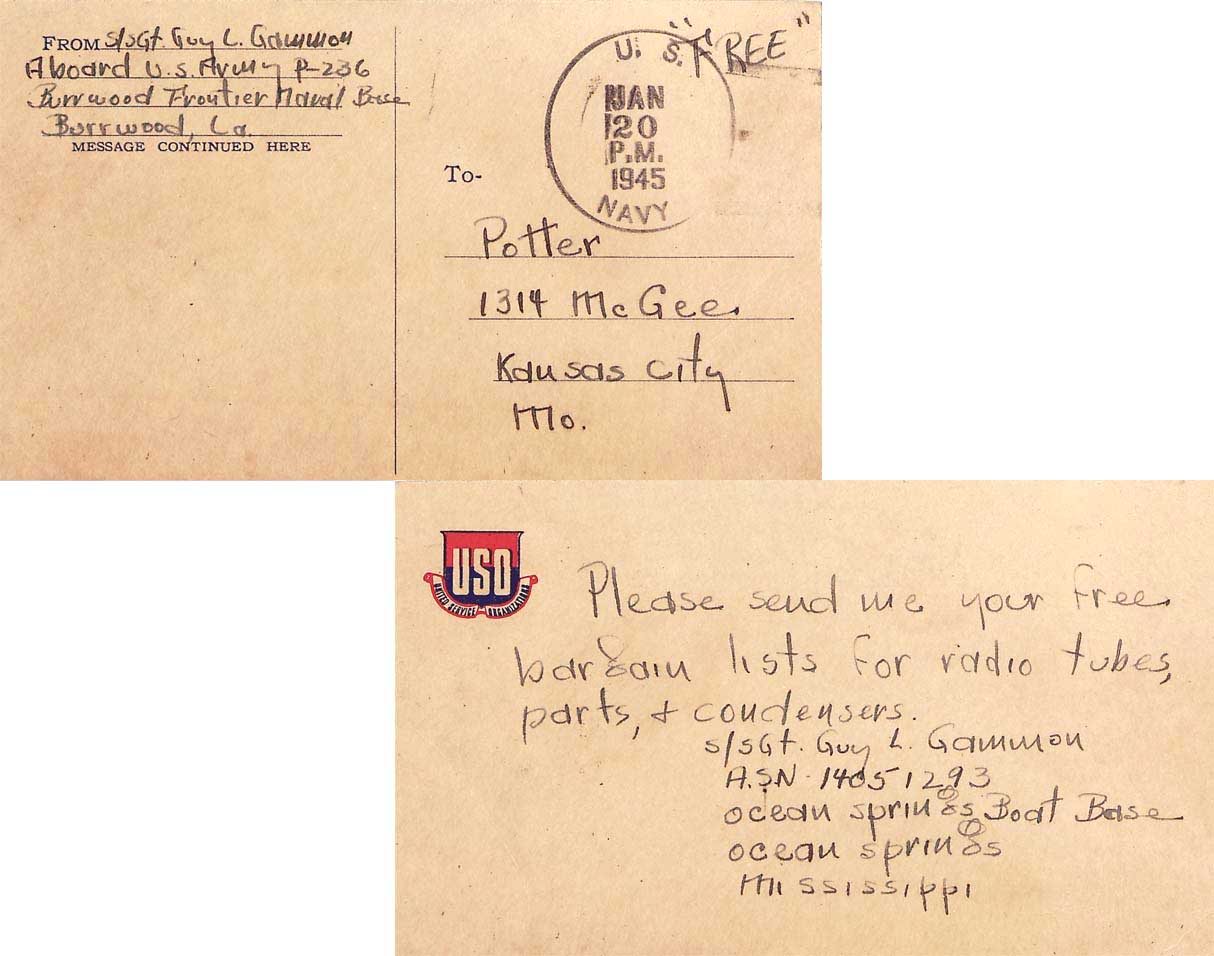 FROM S/Sgt. Guy L. Gammon
Aboard U.S. Army P-236
Burrwood Frontier Naval Base
Burrwood, La.
MESSAGE CONTINUED HERE
"FREE"
U. S.
JAN
20
P.M.
1945
NAVY
To-
Potter
1314 McGee.
Kansas City
Mo.
USO
UNITED SERVICE ORGANIZATIONS
Please send me your free
bargain lists for radio tubes,
parts, & condensers.
S/Sgt. Guy L. Gammon
A.S.N. 14051293
Ocean Springs Boat Base
Ocean Springs
Mississippi